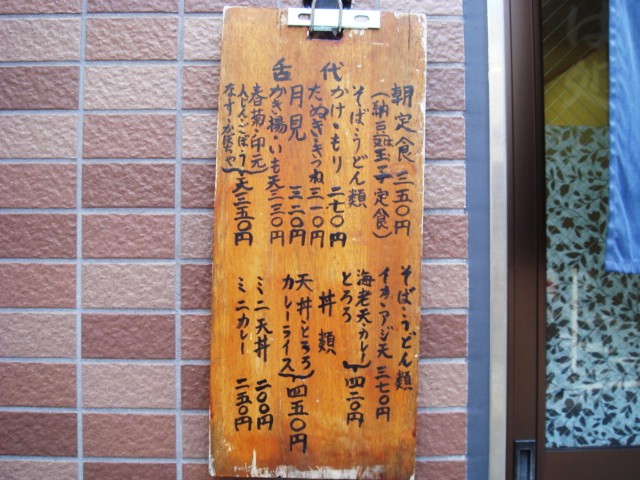 代舌
朝定食 三五〇円
(納豆又は玉子定食)
そば・うどん類
かけ・もり 二七〇円
たぬき・きつね 三一〇円
月見 三二〇円
かき揚・いも天 三三〇円
春菊・印元
人じん・ごぼう 天 三五〇円
なす・かぼちゃ
そば・うどん類
イカ・アジ天 三七〇円
海老天・カレー
とろろ 四二〇円
丼類
天丼・とろろ
カレーライス 四五〇円
ミニ天丼 二〇〇円
ミニカレー 二五〇円